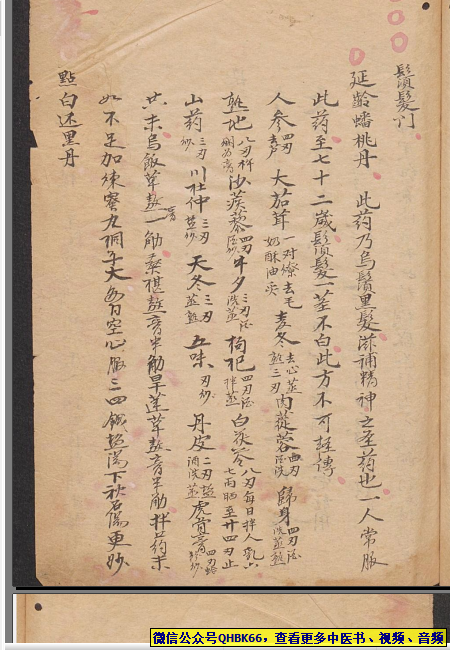 鬚髮門
延齡蟠桃丹 此药乃烏鬚黑髮滋補精神之圣药也一人常服
此药至七十二歲鬚髮一莖不白此方不可輕傳
人参四刃去芦 大茄茸一对燎去毛奶酥油炙 麦冬去心蒸熟三刃 肉蓯蓉四刃酒洗 歸身四刃酒洗蒸
熟地八刃 沙蒺藜四刃 牛夕三刃酒洗蒸 枸杞四刃酒拌蒸 白茯苓八刃每日拌人乳六七両晒至廿四刃止
山药三刃炒 川杜仲三刃盐炒 天冬三刃蒸熟 五味刃炒 丹皮二刃酒洗蒸 虎骨膏四刃
共末烏飯草熬膏一觔桑椹熬膏半觔旱蓮草熬膏半觔拌药末
如不足加煉蜜丸桐子大每日空心服三四錢盐湯下秋石湯更妙
點白还黑丹
微信公众号QHBK66，查看更多中医书、视频、音频